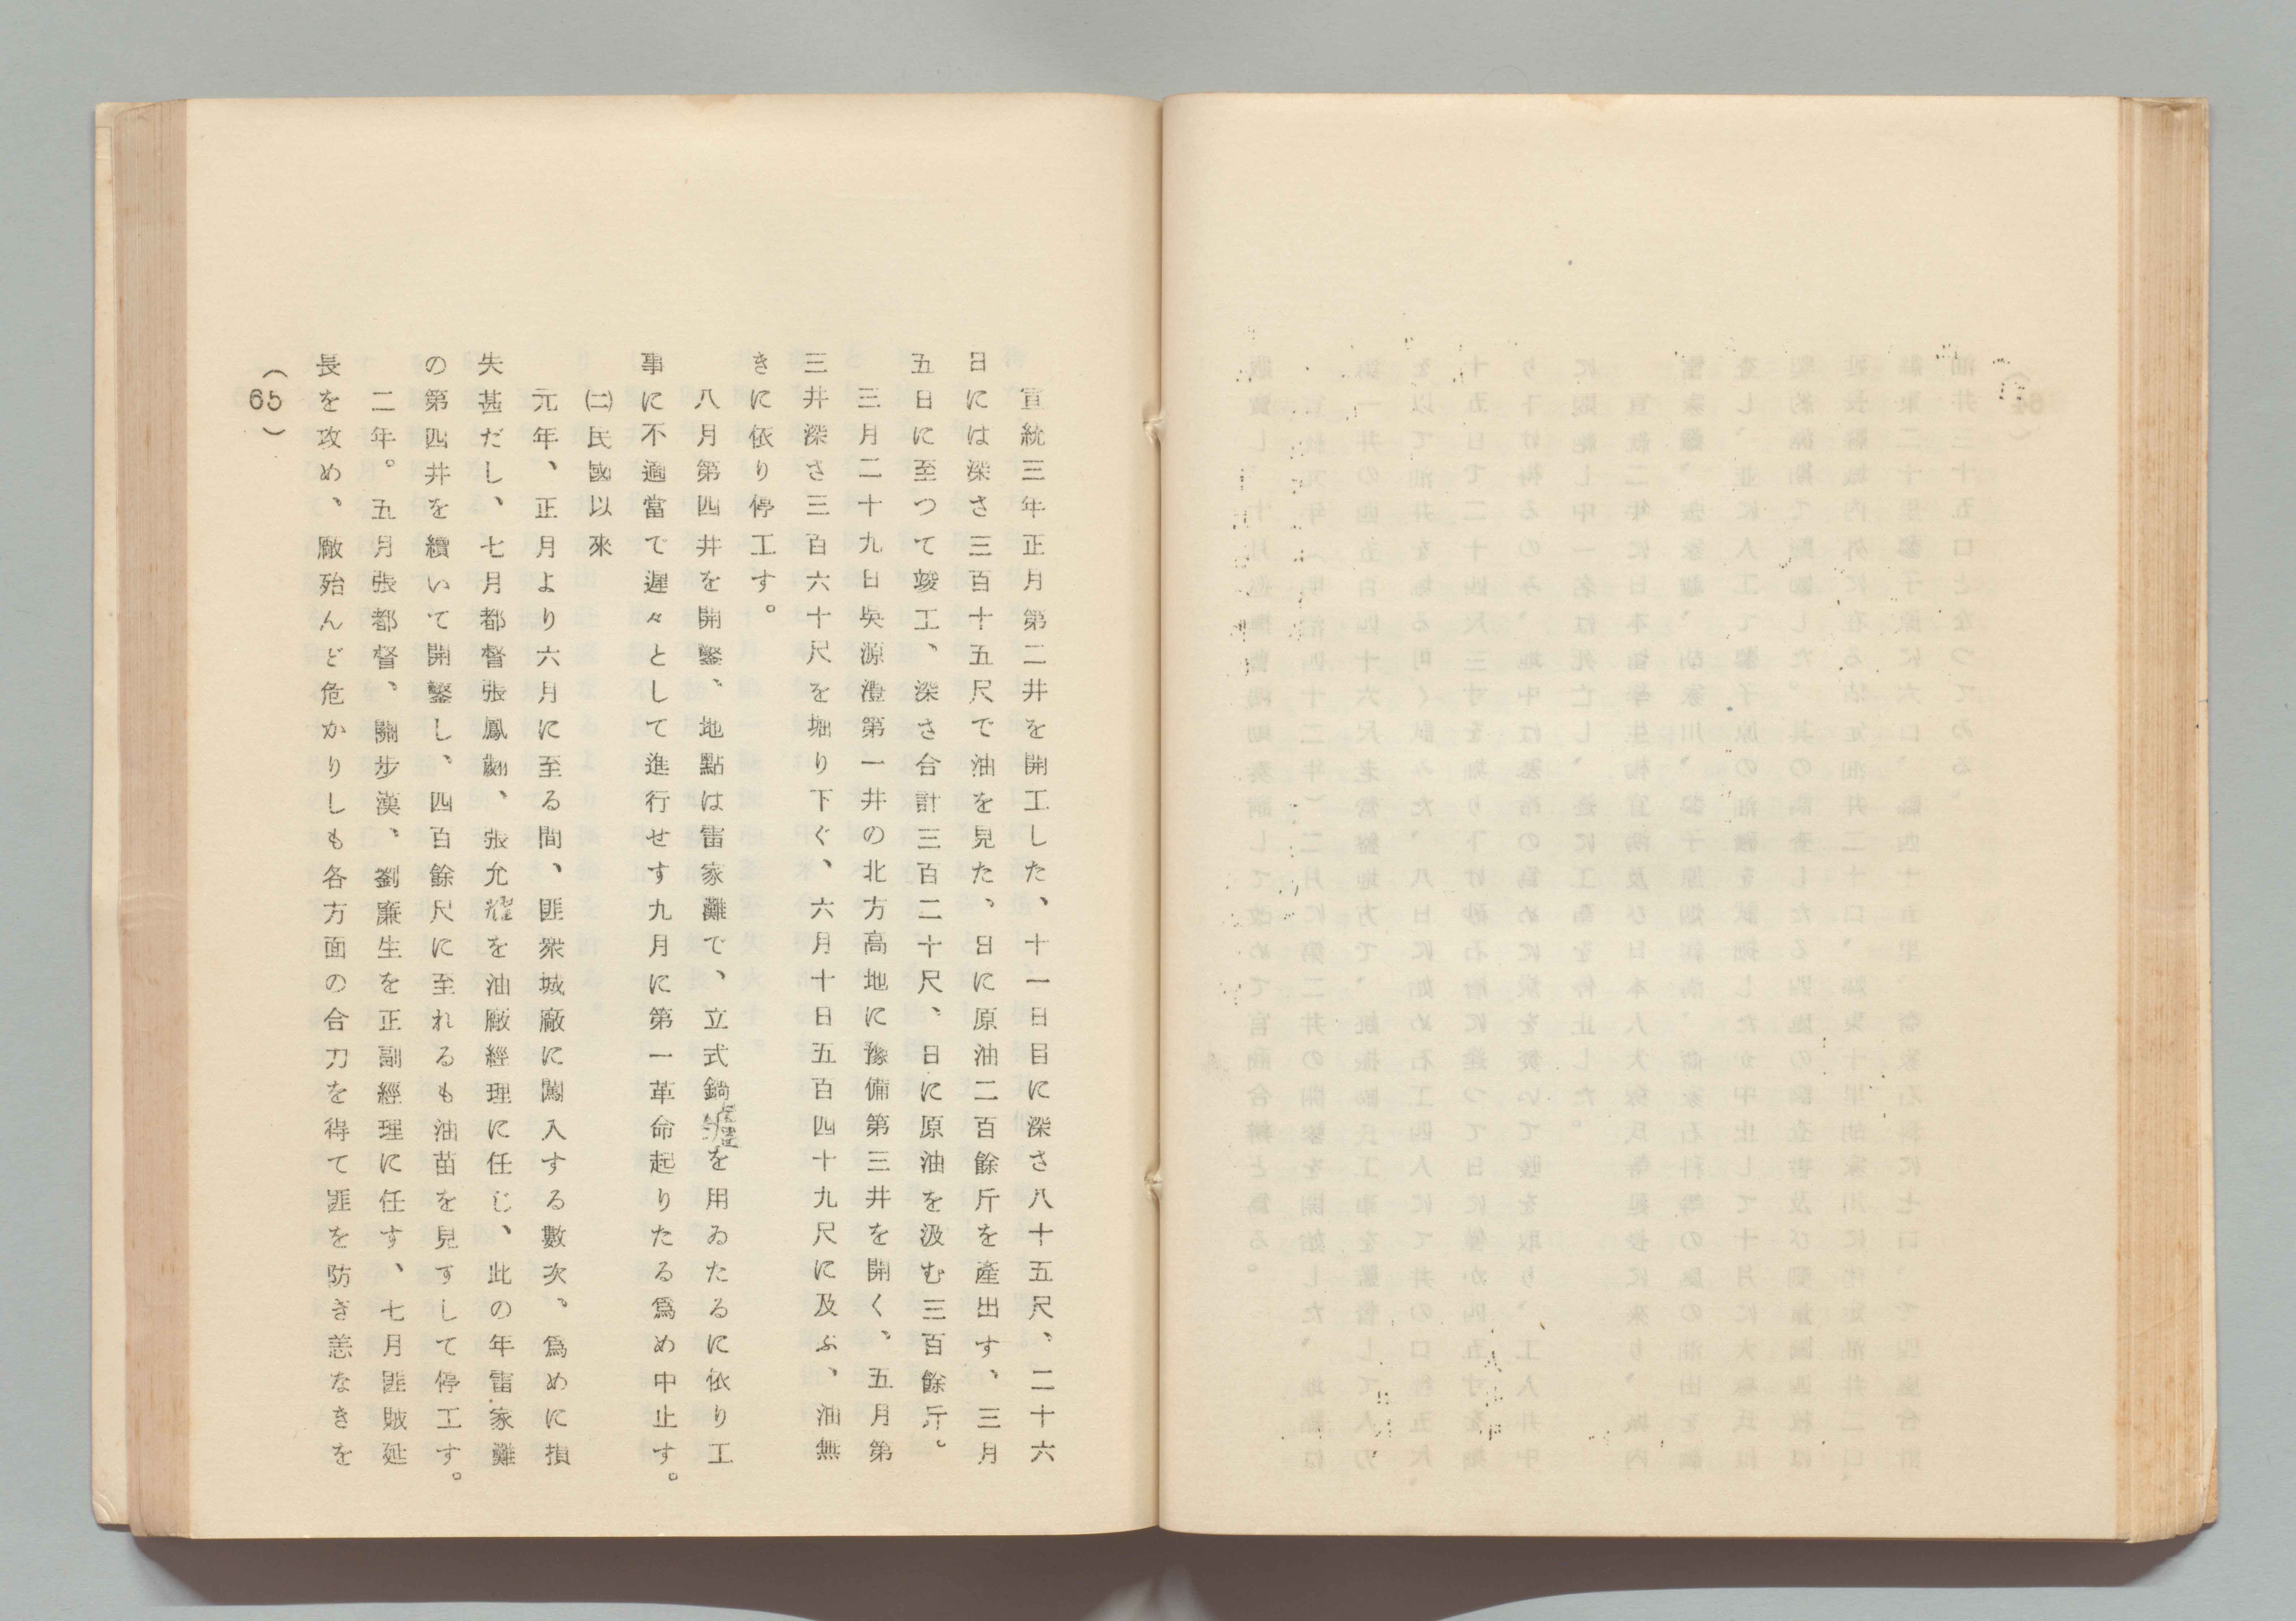 宣統三年正月第二井を開工した、十一日目に深さ八十五尺、二十六
日には深さ三百十五尺で油を見た、日に原油二百餘斤を產出す、三月
五日に至つて竣工、深さ合計三百二十尺、日に原油を汲む三百餘斤。
三月二十九日吳源澧第一井の北方高地に豫備第三井を開く、五月第
三井深さ三百六十尺を堀り下ぐ、六月十日五百四十九尺に及ぶ、油無
きに依り停工す。
八月第四井を開鑿、地點は雷家灘で、立式鍋爐を用ゐたるに依り工
事に不適當で遲々として進行せす九月に第一革命起りたる爲め中止す。
㈡民國以來
元年、正月より六月に至る間、匪衆城廠に闖入する數次、爲めに損
失甚だし、七月都督張鳳翽、張允耀を油廠經理に任じ、此の年雷家灘
の第四井を續いて開鑿し、四百餘尺に至れるも油苗を見すして停工す。
二年。五月張都督、關步漢、劉廉生を正副經理に任す、七月匪賊延
長を攻め、廠殆んど危かりしも各方面の合力を得て匪を防ぎ恙なきを
（65）